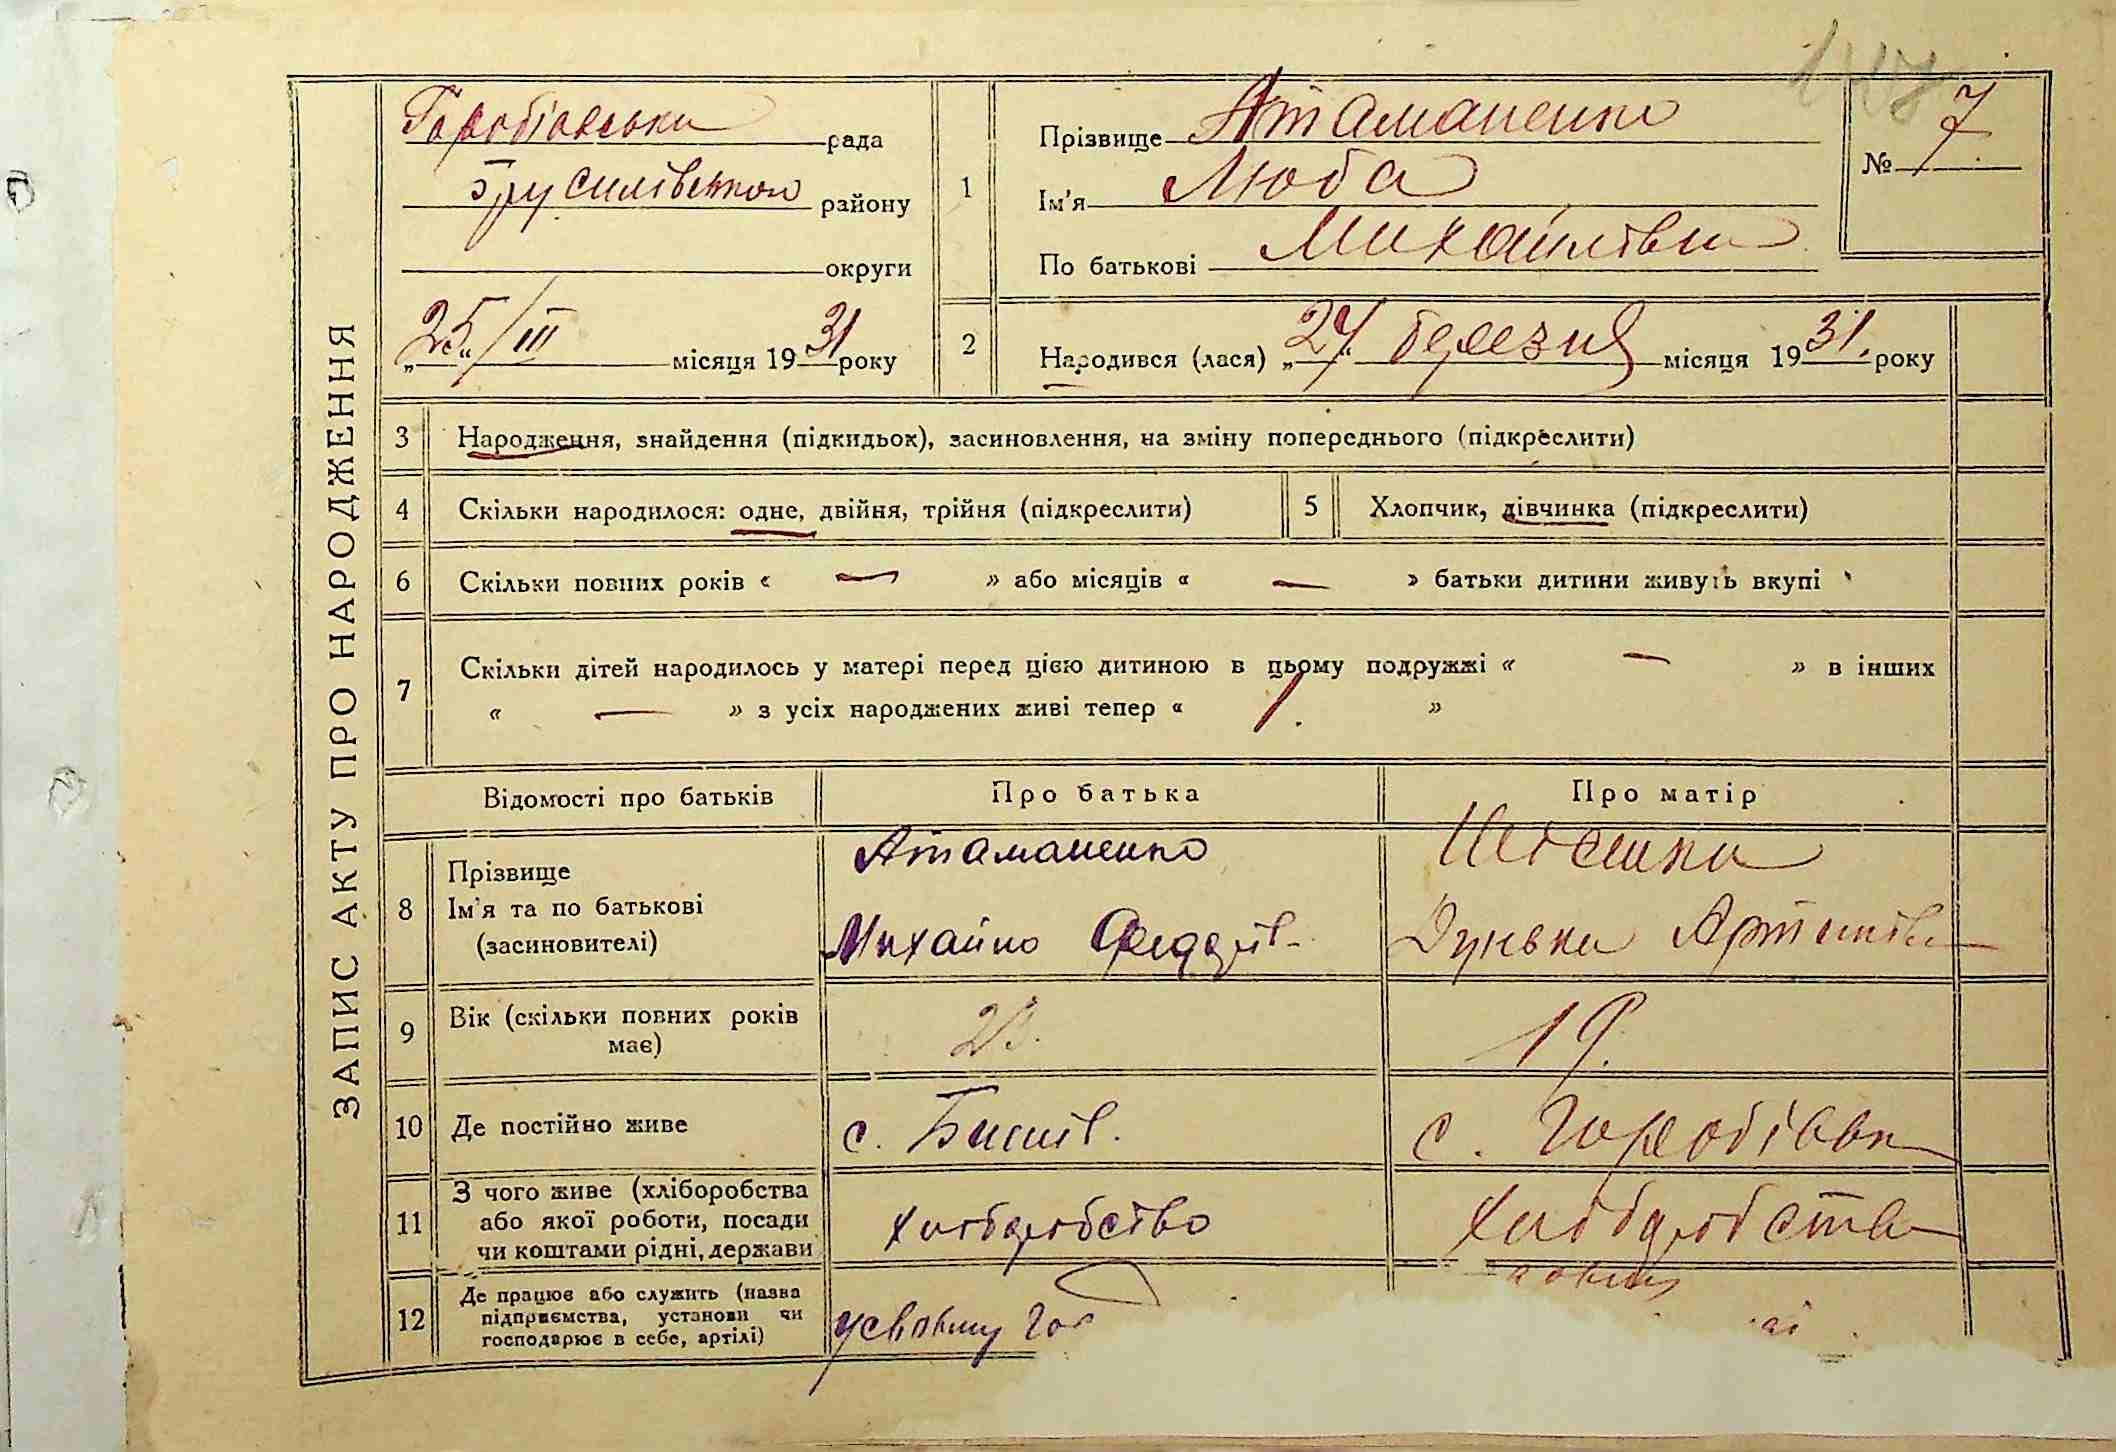 ЗАПИС АКТУ ПРО НАРОДЖЕННЯ
рада
Брусилівського району
округи
25/III місяця 1931 року
1
Прізвище Атаманенко
Ім'я Люба
По батькові Михайлівна
№ 7
2
Народився (лася) „24“ березня місяця 1931. року
3 Народження, знайдення (підкидьок), засиновлення, на зміну попереднього (підкреслити)
4 Скільки народилося: одне, двійня, трійня (підкреслити)
5 Хлопчик, дівчинка (підкреслити)
6 Скільки повних років « — » або місяців « — » батьки дитини живуть вкупі
7 Скільки дітей народилось у матері перед цією дитиною в цьому подружжі « — » в інших
« — » з усіх народжених живі тепер « 1. »
Відомості про батьків Про батька Про матір
8 Прізвище
Ім'я та по батькові
(засиновителі)
Атаманенко
Михайло Федорів
Дунька
9 Вік (скільки повних років
має)
23.
19.
10 Де постійно живе
с.
с. Горобіівка
11 З чого живе (хліборобства
або якої роботи, посади
чи коштами рідні, держави
хліборобство
хліборобства
12 Де працює або служить (назва
підприємства, установи чи
господарює в себе, артілі)